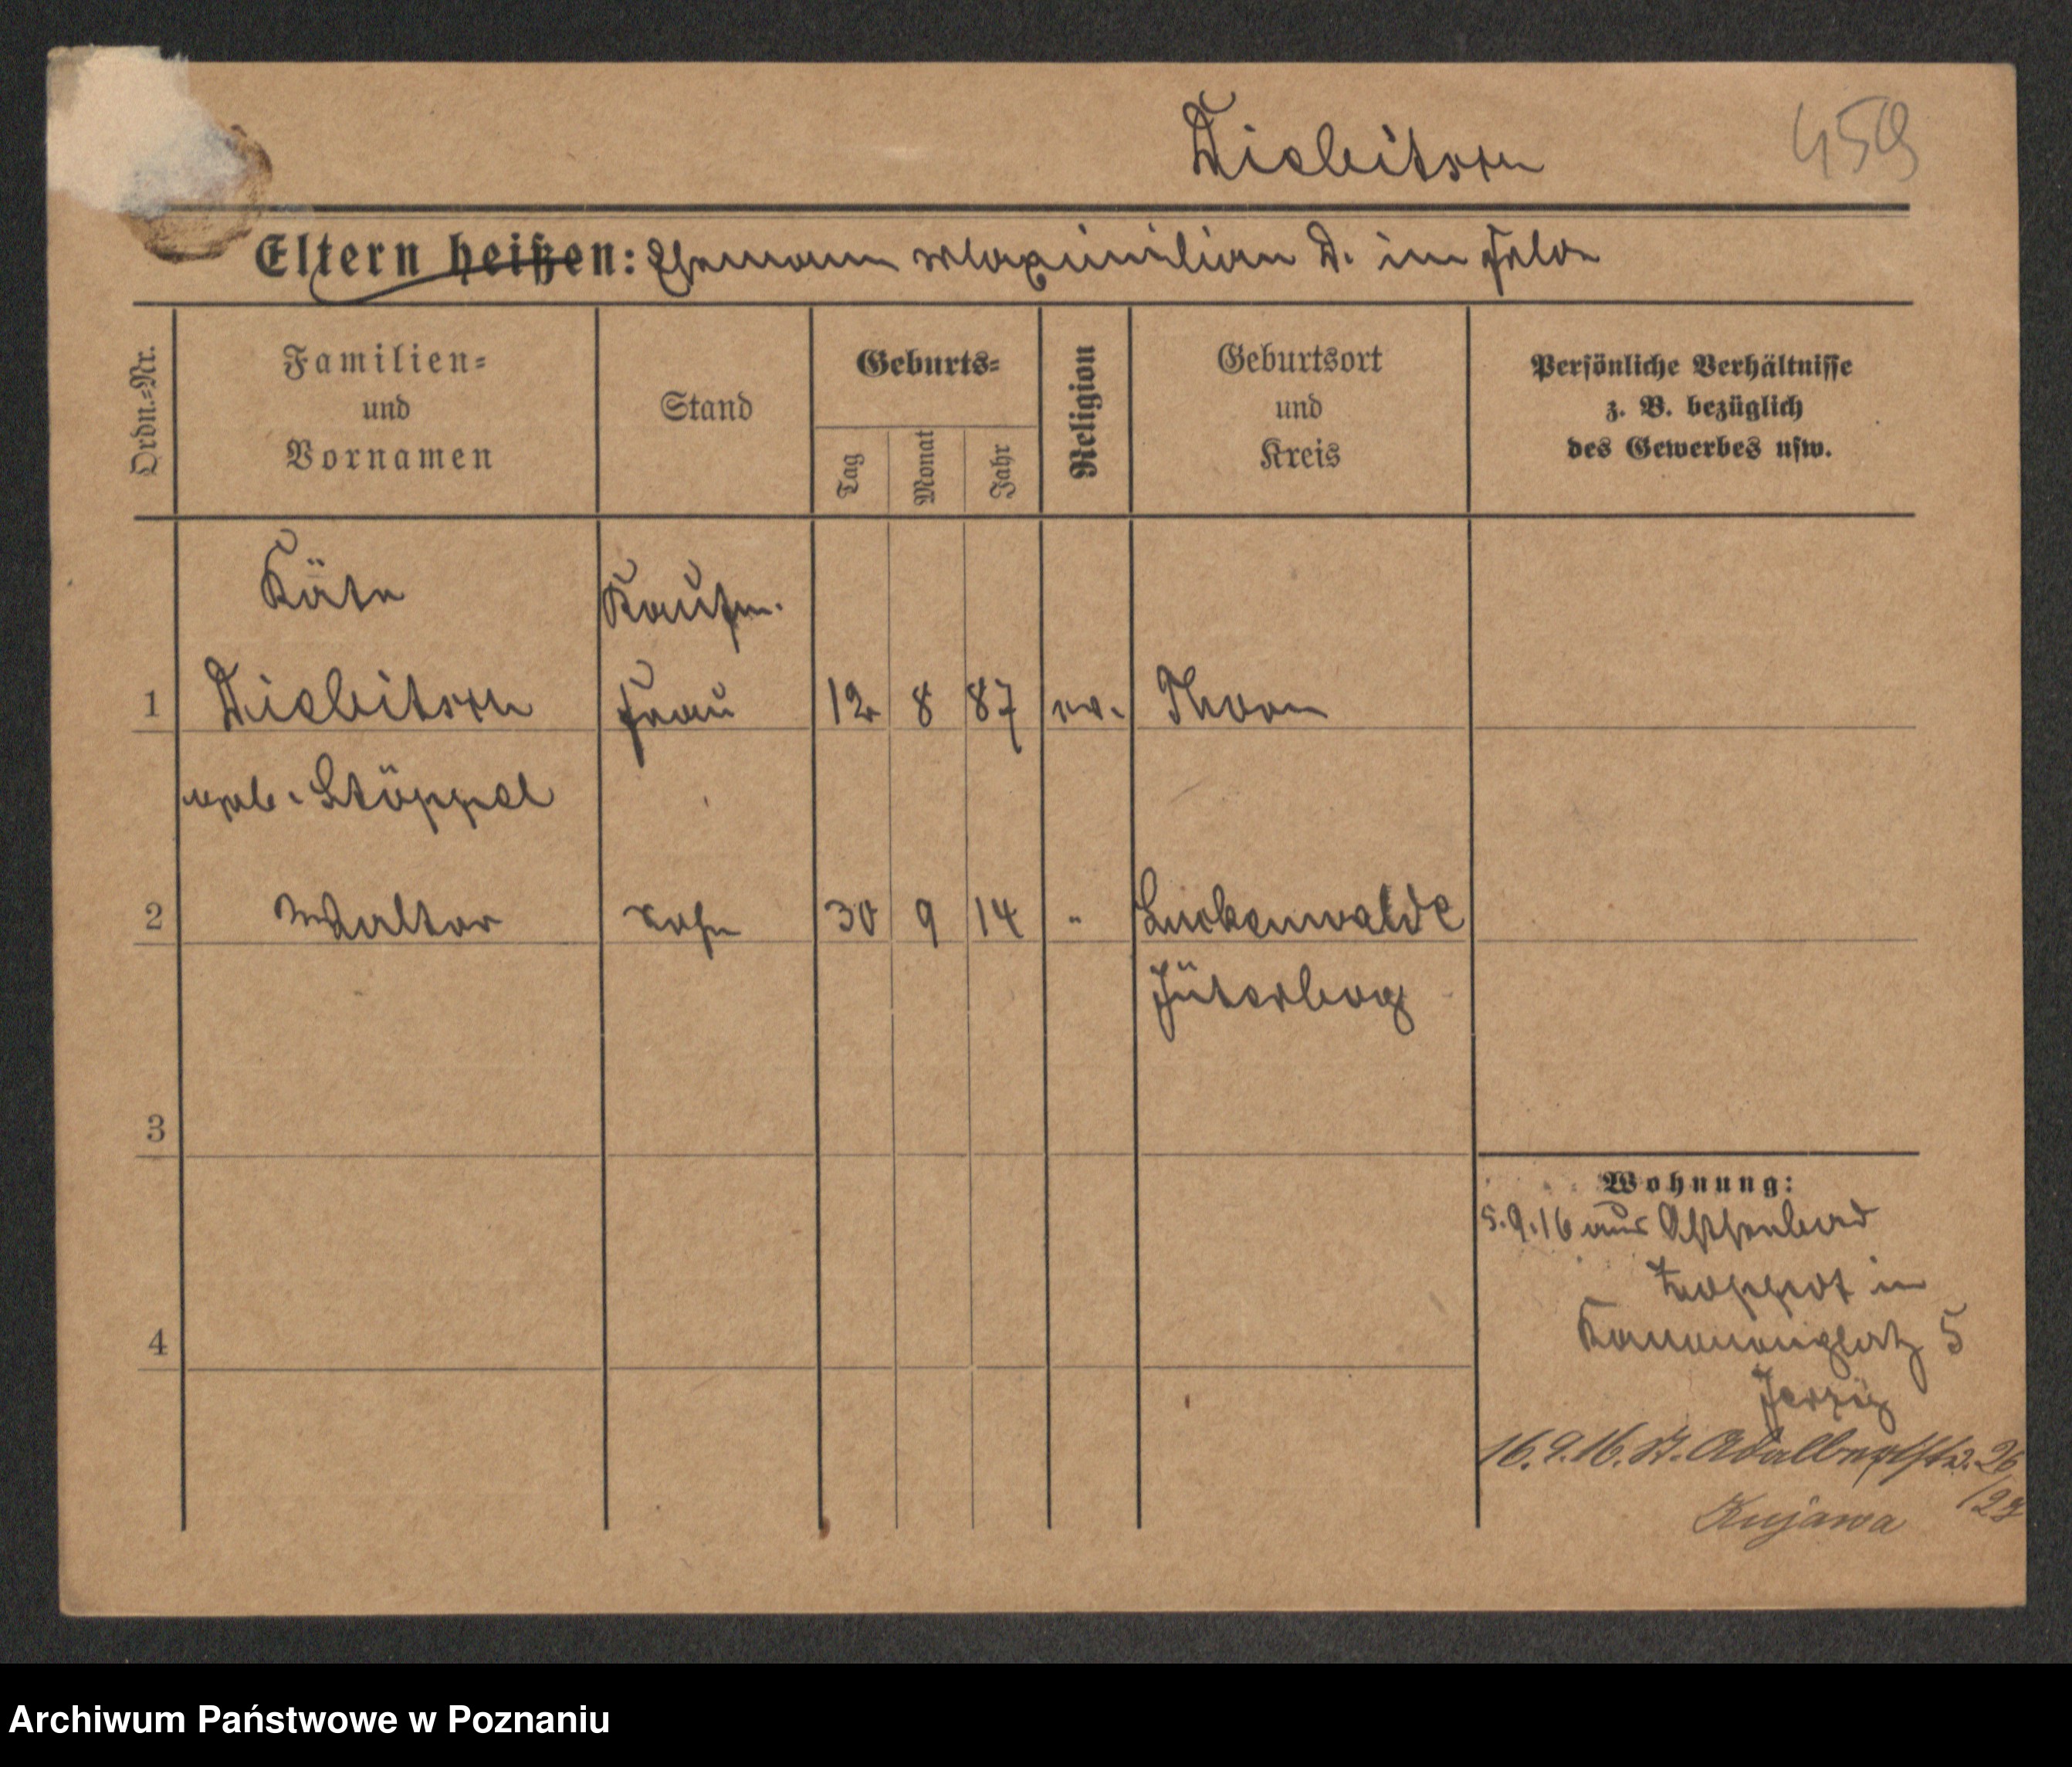 Diebitsch
459
Eltern heißen: Ehemann Maximilian D. im Felde
Ordn.-Nr.
Familien-
und
Vornamen
Stand
Geburts-
Tag
Monat
Jahr
Religion
Geburtsort
und
Kreis
Persönliche Verhältnisse
z. B. bezüglich
des Gewerbes usw.
Käte
Kaufm.
1 Diebitsch Frau 12 8 87 ev. Thorn
geb. Stöppel
2 Walter Sohn 30 9 14 " Luckenwalde
Jüterbog
3
4
Wohnung:
5.9.16 aus Ostseebad
Zoppot in
Kanonenplatz 5
16.9.16. St. Adalbertstr. 26
/27
Kujawa
Archiwum Państwowe w Poznaniu